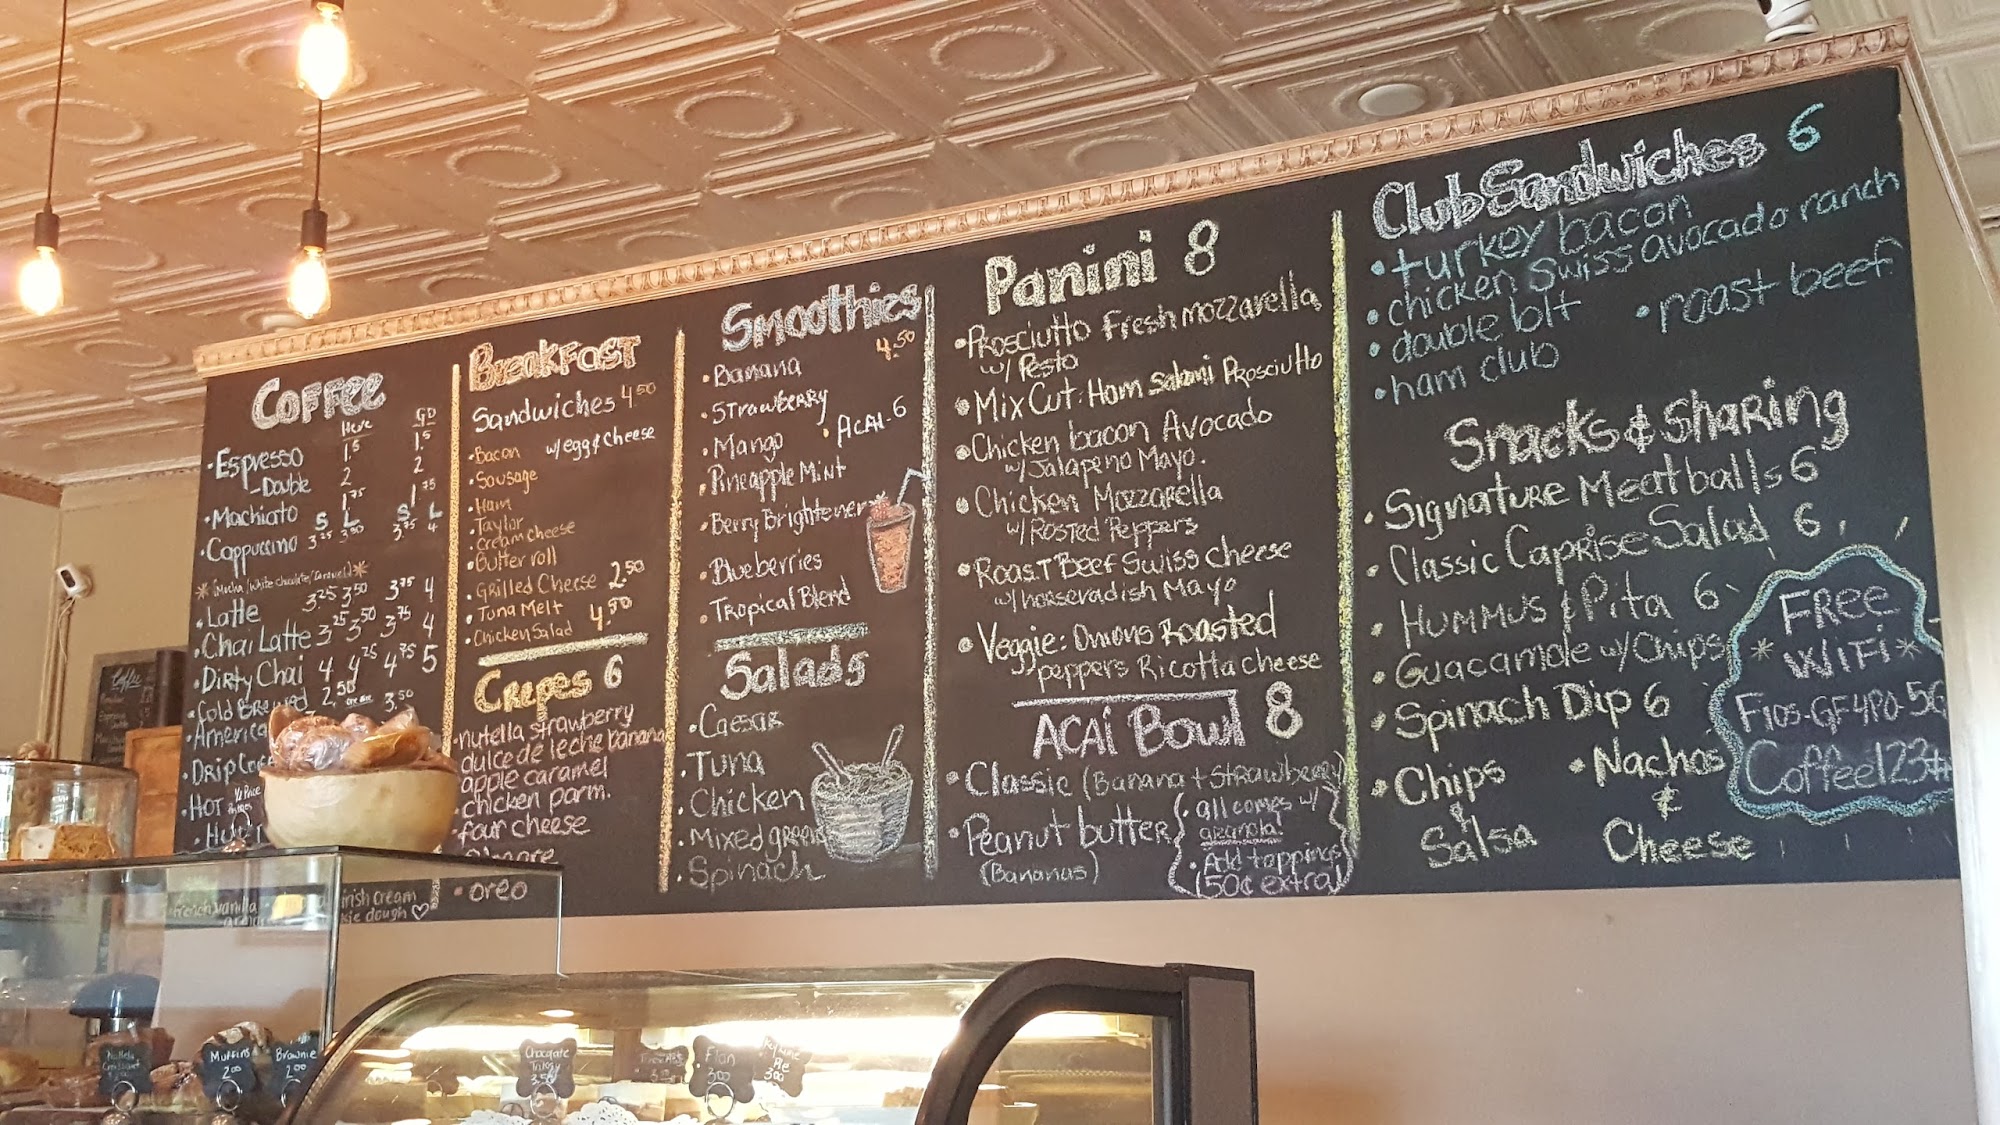 Coffee
Here GO
• Espresso 1.5 1.5
- Double 2 2
• Machiato 1.75 1.75
S L S L
• Cappuccino 3.25 3.50 3.75 4
* (Mocha/White chocolate/Caramel) *
• Latte 3.25 3.50 3.75 4
• Chai Latte 3.25 3.50 3.75 4
• Dirty Chai 4 4.25 4.75 5
• Cold Brewed 2.50 3.50
• America
• Drip
• HOT
Breakfast
Sandwiches 4.50
w/egg & cheese
• Bacon
• Sausage
• Ham
• Taylor
• cream cheese
• Butter roll
• Grilled Cheese 2.50
• Tuna Melt
• Chicken Salad 4.50
Crepes 6
• nutella strawberry
dulce de leche banana
apple caramel
• chicken parm.
• four cheese
s'more
• oreo
irish cream
french vanilla
dough ♡
Smoothies
4.50
• Banana
• Strawberry
• Mango
• ACAI - 6
• Pineapple Mint
• Berry Brightener
• Blueberries
• Tropical Blend
Salads
• Caesar
• Tuna
• Chicken
• Mixed greens
• Spinach
Panini 8
• Prosciutto Fresh mozzarella
w/ Pesto
• Mix Cut: Ham Salami Prosciutto
• Chicken bacon Avocado
w/ Jalapeno Mayo.
• Chicken Mozzarella
w/ Rosted Peppers
• Roast Beef Swiss cheese
w/ horseradish Mayo
• Veggie: Onions Roasted
peppers Ricotta cheese
ACAI Bowl 8
• Classic (Banana + Strawberry)
• Peanut butter
(Bananas)
• all comes w/
granola!
• Add toppings
(50¢ extra)
Club Sandwiches 6
• turkey bacon
• chicken swiss avocado ranch
• double blt
• roast beef
• ham club
Snacks & Sharing
• Signature Meatballs 6
• Classic Caprise Salad 6
• Hummus & Pita 6
• Guacamole w/ Chips
• Spinach Dip 6
• Chips
&
Salsa
• Nachos
&
Cheese
Free
* WiFi *
Fios-GF4P0-5G
Coffee123#
Coffee
Nutella
Croissant
Muffins
2.00
Brownie
2.00
Chocolate
3.50
Flan
3.00
Key Lime
Pie
3.00